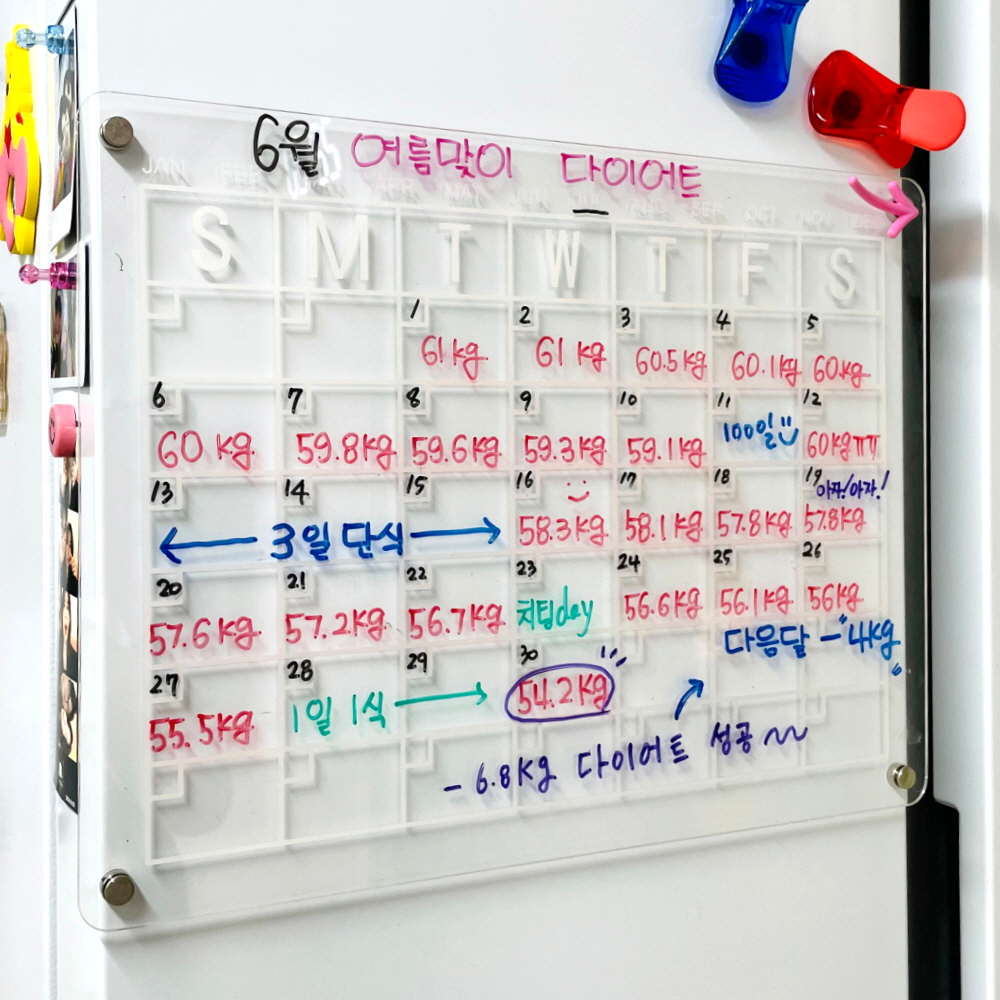 6월 여름맞이 다이어트
JAN FEB MAR APR MAY JUN JUL AUG SEP OCT NOV
S M T W T F S
1 2 3 4 5
61kg 61kg 60.5kg 60.1kg 60kg
6 7 8 9 10 11 12
100일
60kg 59.8kg 59.6kg 59.3kg 59.1kg 60kgㅠㅠ
13 14 15 16 17 18 19
아자!아자!
3일 단식 58.3kg 58.1kg 57.8kg 57.8kg
20 21 22 23 24 25 26
57.6kg 57.2kg 56.7kg 치팅day 56.6kg 56.1kg 56kg
다음달 -"4kg"
27 28 29 30
55.5kg 1일 1식 54.2kg
- 6.8kg 다이어트 성공~~